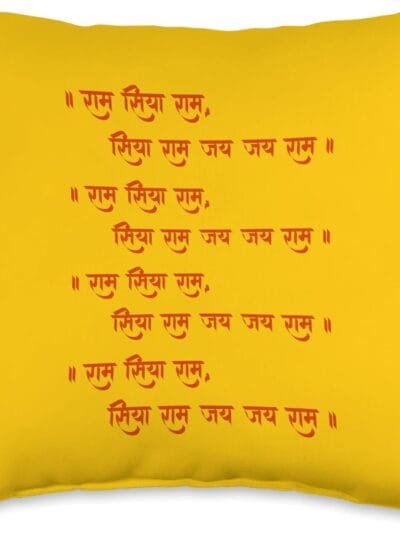 ॥ राम सिया राम,
सिया राम जय जय राम ॥
॥ राम सिया राम,
सिया राम जय जय राम ॥
॥ राम सिया राम,
सिया राम जय जय राम ॥
॥ राम सिया राम,
सिया राम जय जय राम ॥